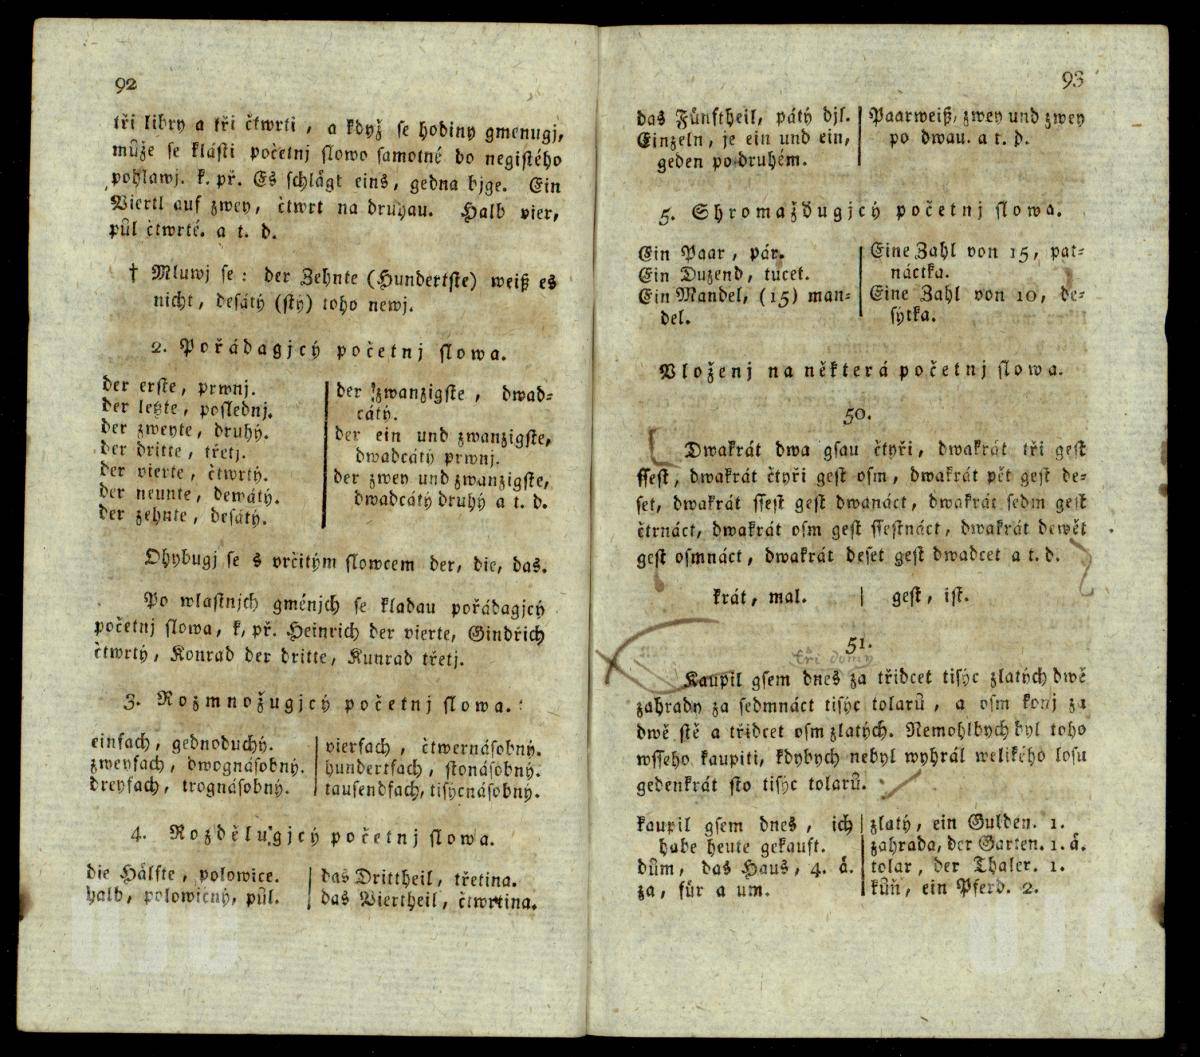 92
tři libry a tři čtwrti, a když se hodiny gmenugj,
může se klásti početnj slowo samotné do negistého
pohlawj. k. př. Es schlågt eins, gedna bjge. Ein
Viertl auf zwey, čtwrt na druhau. Halb vier,
půl čtwrté. a t. d.
† Mluwj se: der Zehnte (Hundertste) weiß es
nicht, desátý (stý) toho newj.
2. Pořádagjcý početnj slowa.
der erste, prwnj.
der letzte, poslednj.
der zweyte, druhý.
der dritte, třetj.
der vierte, čtwrtý.
der neunte, dewátý.
der zehnte, desátý.
der zwanzigste, dwad-
cátý.
der ein und zwanzigste,
dwadcátý prwnj.
der zwey und zwanzigste,
dwadcátý druhý a t. d.
Ohybugj se s určitým slowcem der, die, das.
Po wlastnjch gménjch se kladau pořádagjcý
početnj slowa, k, př. Heinrich der vierte, Gindřich
čtwrtý, Konrad der dritte, Kunrad třetj.
3. Rozmnožugjcý početnj slowa.
einfach, gednoduchý.
zweyfach, dwognásobný.
dreyfach, trognásobný.
vierfach, čtwernásobný.
hundertfach, stonásobný.
tausendfach, tisýcnásobný.
4. Rozdělugjcý početnj slowa.
die Hälfte, polowice.
halb, polowičný, půl.
das Drittheil, třetina.
das Viertheil, čtwrtina.
93
das Fůnftheil, pátý djl.
Einzeln, je ein und ein,
geden po druhém.
Paarweiß, zwey und zwey
po dwau. a t. d.
5. Shromažďugjcý početnj slowa.
Ein Paar, pár.
Ein Duzend, tucet.
Ein Mandel, (15) man-
del.
Eine Zahl von 15, pat-
náctka.
Eine Zahl von 10, de-
sýtka.
Vloženj na některá početnj slowa.
50.
Dwakrát dwa gsau čtyři, dwakrát tři gest
ssest, dwakrát čtyři gest osm, dwakrát pět gest de-
set, dwakrát ssest gest dwanáct, dwakrát sedm gest
čtrnáct, dwakrát osm gest ssestnáct, dwakrát dewět
gest osmnáct, dwakrát deset gest dwadcet a t. d.
krát, mal. | gest, ist.
51.
tři domy
Kaupil gsem dnes za třidcet tisýc zlatých dwě
zahrady za sedmnáct tisýc tolarů, a osm konj za
dwě stě a třidcet osm zlatých. Nemohlbych byl toho
wsseho kaupiti, kdybych nebyl wyhrál welikého losu
gedenkrát sto tisýc tolarů.
kaupil gsem dnes, ich
habe heute gekauft.
dům, das Haus, 4. å.
za, fůr a um.
zlatý, ein Gulden. 1.
zahrada, der Garten. 1. å.
tolar, der Thaler. 1.
kůň, ein Pferd. 2.
UJC
UJC